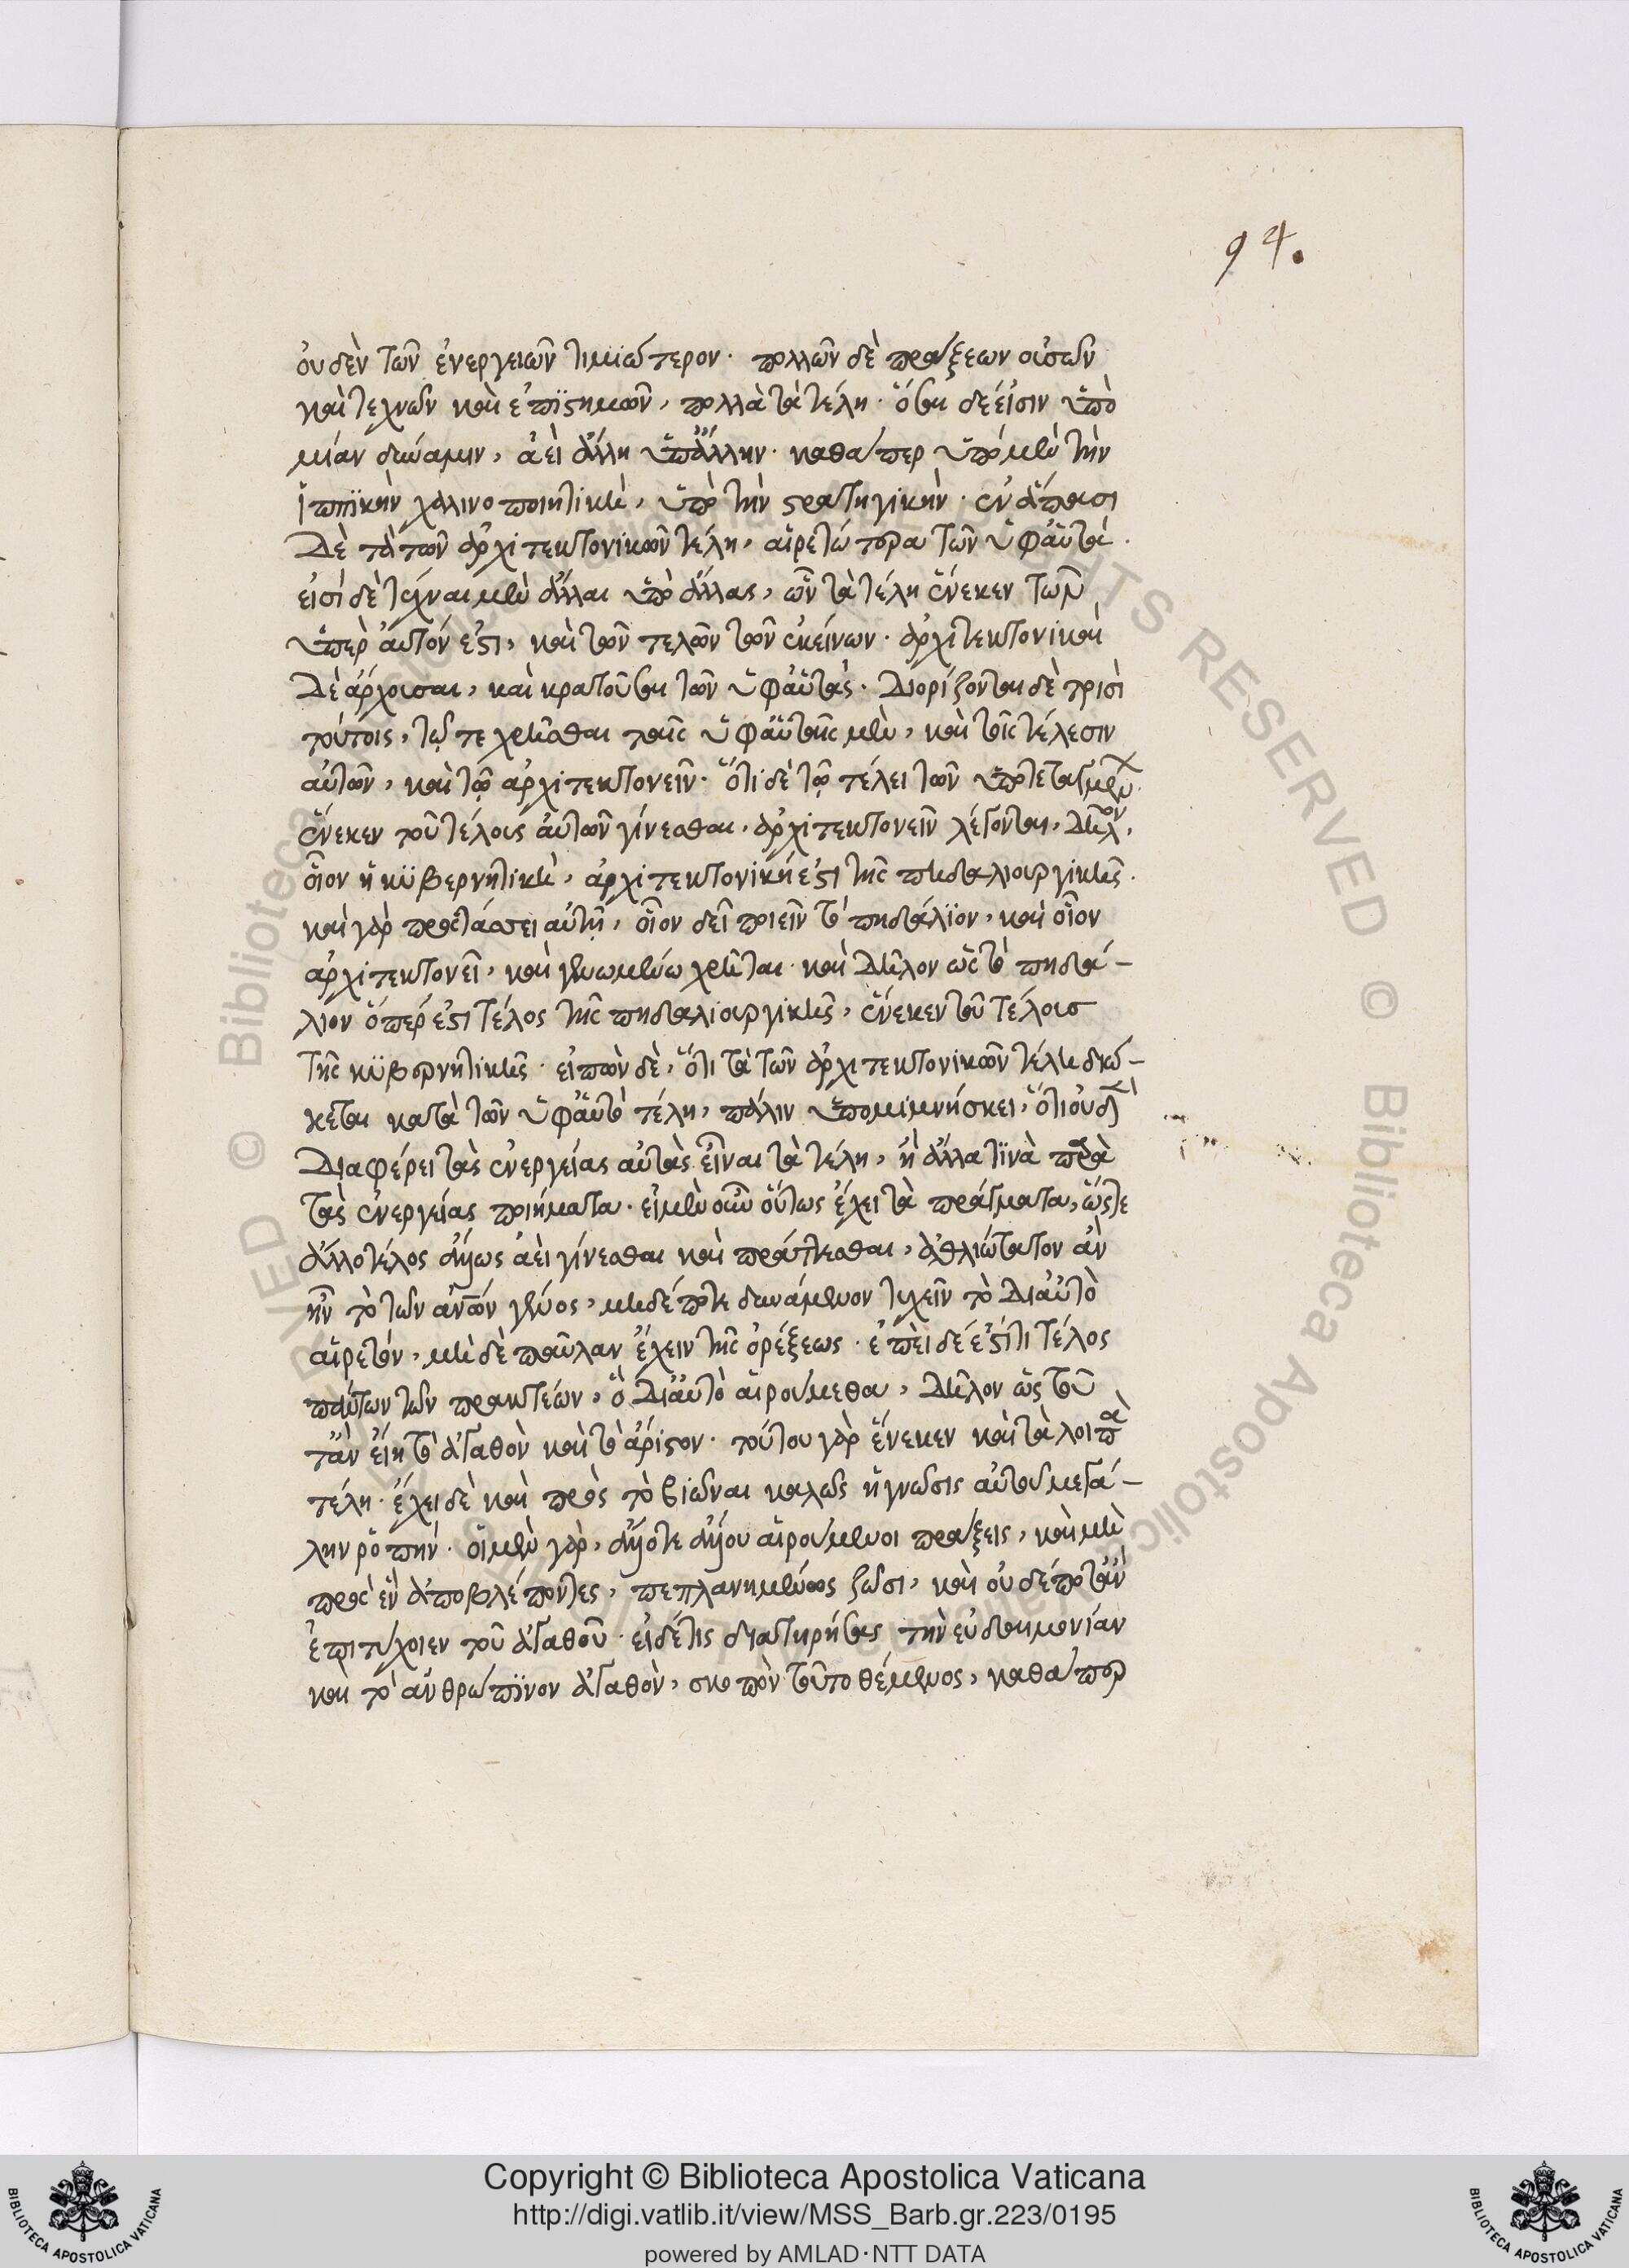 94.
οὐδὲν τῶν ἐνεργειῶν τιμιώτερον· πολλῶν δὲ πράξεων οὐσῶν
καὶ τεχνῶν καὶ ἐπιστημῶν, πολλὰ τὰ τέλη· ὅσαι δέ εἰσιν ὑπὸ
μίαν δύναμιν, ἀεὶ ἄλλη ὑπ' ἄλλην· καθάπερ ὑπὸ μὲν τὴν
ἱππικὴν χαλινοποιητικὴ, ὑπὸ τὴν στρατηγικὴν· ἐν ἅπασι
δὲ τὰ τῶν ἀρχιτεκτονικῶν τέλη, αἱρετώτερα τῶν ὑφ' αὑτά·
εἰσὶ δὲ τέχναι μὲν ἄλλαι ὑπὸ ἄλλας, ὧν τὰ τέλη ἕνεκεν τῶν
ὑπὲρ αὐτόν ἐστι, καὶ τῶν τελῶν τῶν ἐκείνων· ἀρχιτεκτονικαὶ
δὲ ἄρχουσαι, καὶ κρατοῦσαι τῶν ὑφ' αὑτὰς· διορίζονται δὲ τρισὶ
τούτοις, τῷ τε χρῆσθαι ταῖς ὑφ' αὑταῖς μὲν, καὶ τοῖς τέλεσιν
αὐτῶν, καὶ τῷ ἀρχιτεκτονεῖν· ὅτι δὲ τῷ τέλει τῶν ὑποτεταγμένων
ἕνεκεν τοῦ τέλους αὐτῶν γίνεσθαι, ἀρχιτεκτονεῖν λέγονται, δῆλον,
οἷον ἡ κυβερνητικὴ, ἀρχιτεκτονική ἐστι τῆς πηδαλιουργικῆς·
καὶ γὰρ προστάσσει αὐτῇ, οἷον δεῖ ποιεῖν τὸ πηδάλιον, καὶ οἷον
ἀρχιτεκτονεῖ, καὶ γενομένῳ χρῆται· καὶ δῆλον ὡς τὸ πηδά-
λιον ὅπερ ἐστὶ τέλος τῆς πηδαλιουργικῆς, ἕνεκεν τοῦ τέλους
τῆς κυβερνητικῆς· εἰπὼν δὲ, ὅτι τὰ τῶν ἀρχιτεκτονικῶν τέλη διώ-
κεται κατὰ τῶν ὑφ' αὑτὸ τέλη, πάλιν ὑπομιμνήσκει, ὅτι οὐδὲν
διαφέρει τὰς ἐνεργείας αὐτὰς εἶναι τὰ τέλη, ἢ ἄλλα τινὰ παρὰ
τὰς ἐνεργείας ποιήματα· εἰ μὲν οὖν οὕτως ἔχει τὰ πράγματα, ὥστε
ἄλλο τέλος ἄλλως ἀεὶ γίνεσθαι καὶ πράττεσθαι, ἀθλιώτατον ἂν
ἦν τὸ τῶν ἀνθρώπων γένος, μηδέποτε δυνάμενον τυχεῖν τὸ δι' αὐτὸ
αἱρετόν, μὴ δὲ παῦλαν ἔχειν τῆς ὀρέξεως· ἐπεὶ δέ ἐστί τι τέλος
πάντων τῶν πρακτέων, ὃ δι' αὐτὸ αἱρούμεθα, δῆλον ὡς τοῦ
τ' ἂν εἴη τὸ ἀγαθὸν καὶ τὸ ἄριστον· τούτου γὰρ ἕνεκεν καὶ τὰ λοιπὰ
τέλη· ἔχει δὲ καὶ πρὸς τὸ βιῶναι καλῶς ἡ γνῶσις αὐτοῦ μεγά-
λην ῥοπήν· οἱ μὲν γὰρ, ἄλλοτε ἄλλου αἱρούμενοι πράξεις, καὶ μὴ
πρὸς ἓν ἀποβλέποντες, πεπλανημένως ζῶσι, καὶ οὐδέποτ' ἂν
ἐπιτύχοιεν τοῦ ἀγαθοῦ· εἰ δέ τις διατηρήσας τὴν εὐδαιμονίαν
καὶ τὸ ἀνθρώπινον ἀγαθὸν, σκοπὸν τοῦτο θέμενος, καθάπερ
Copyright © Biblioteca Apostolica Vaticana
http://digi.vatlib.it/view/MSS_Barb.gr.223/0195
powered by AMLAD·NTT DATA